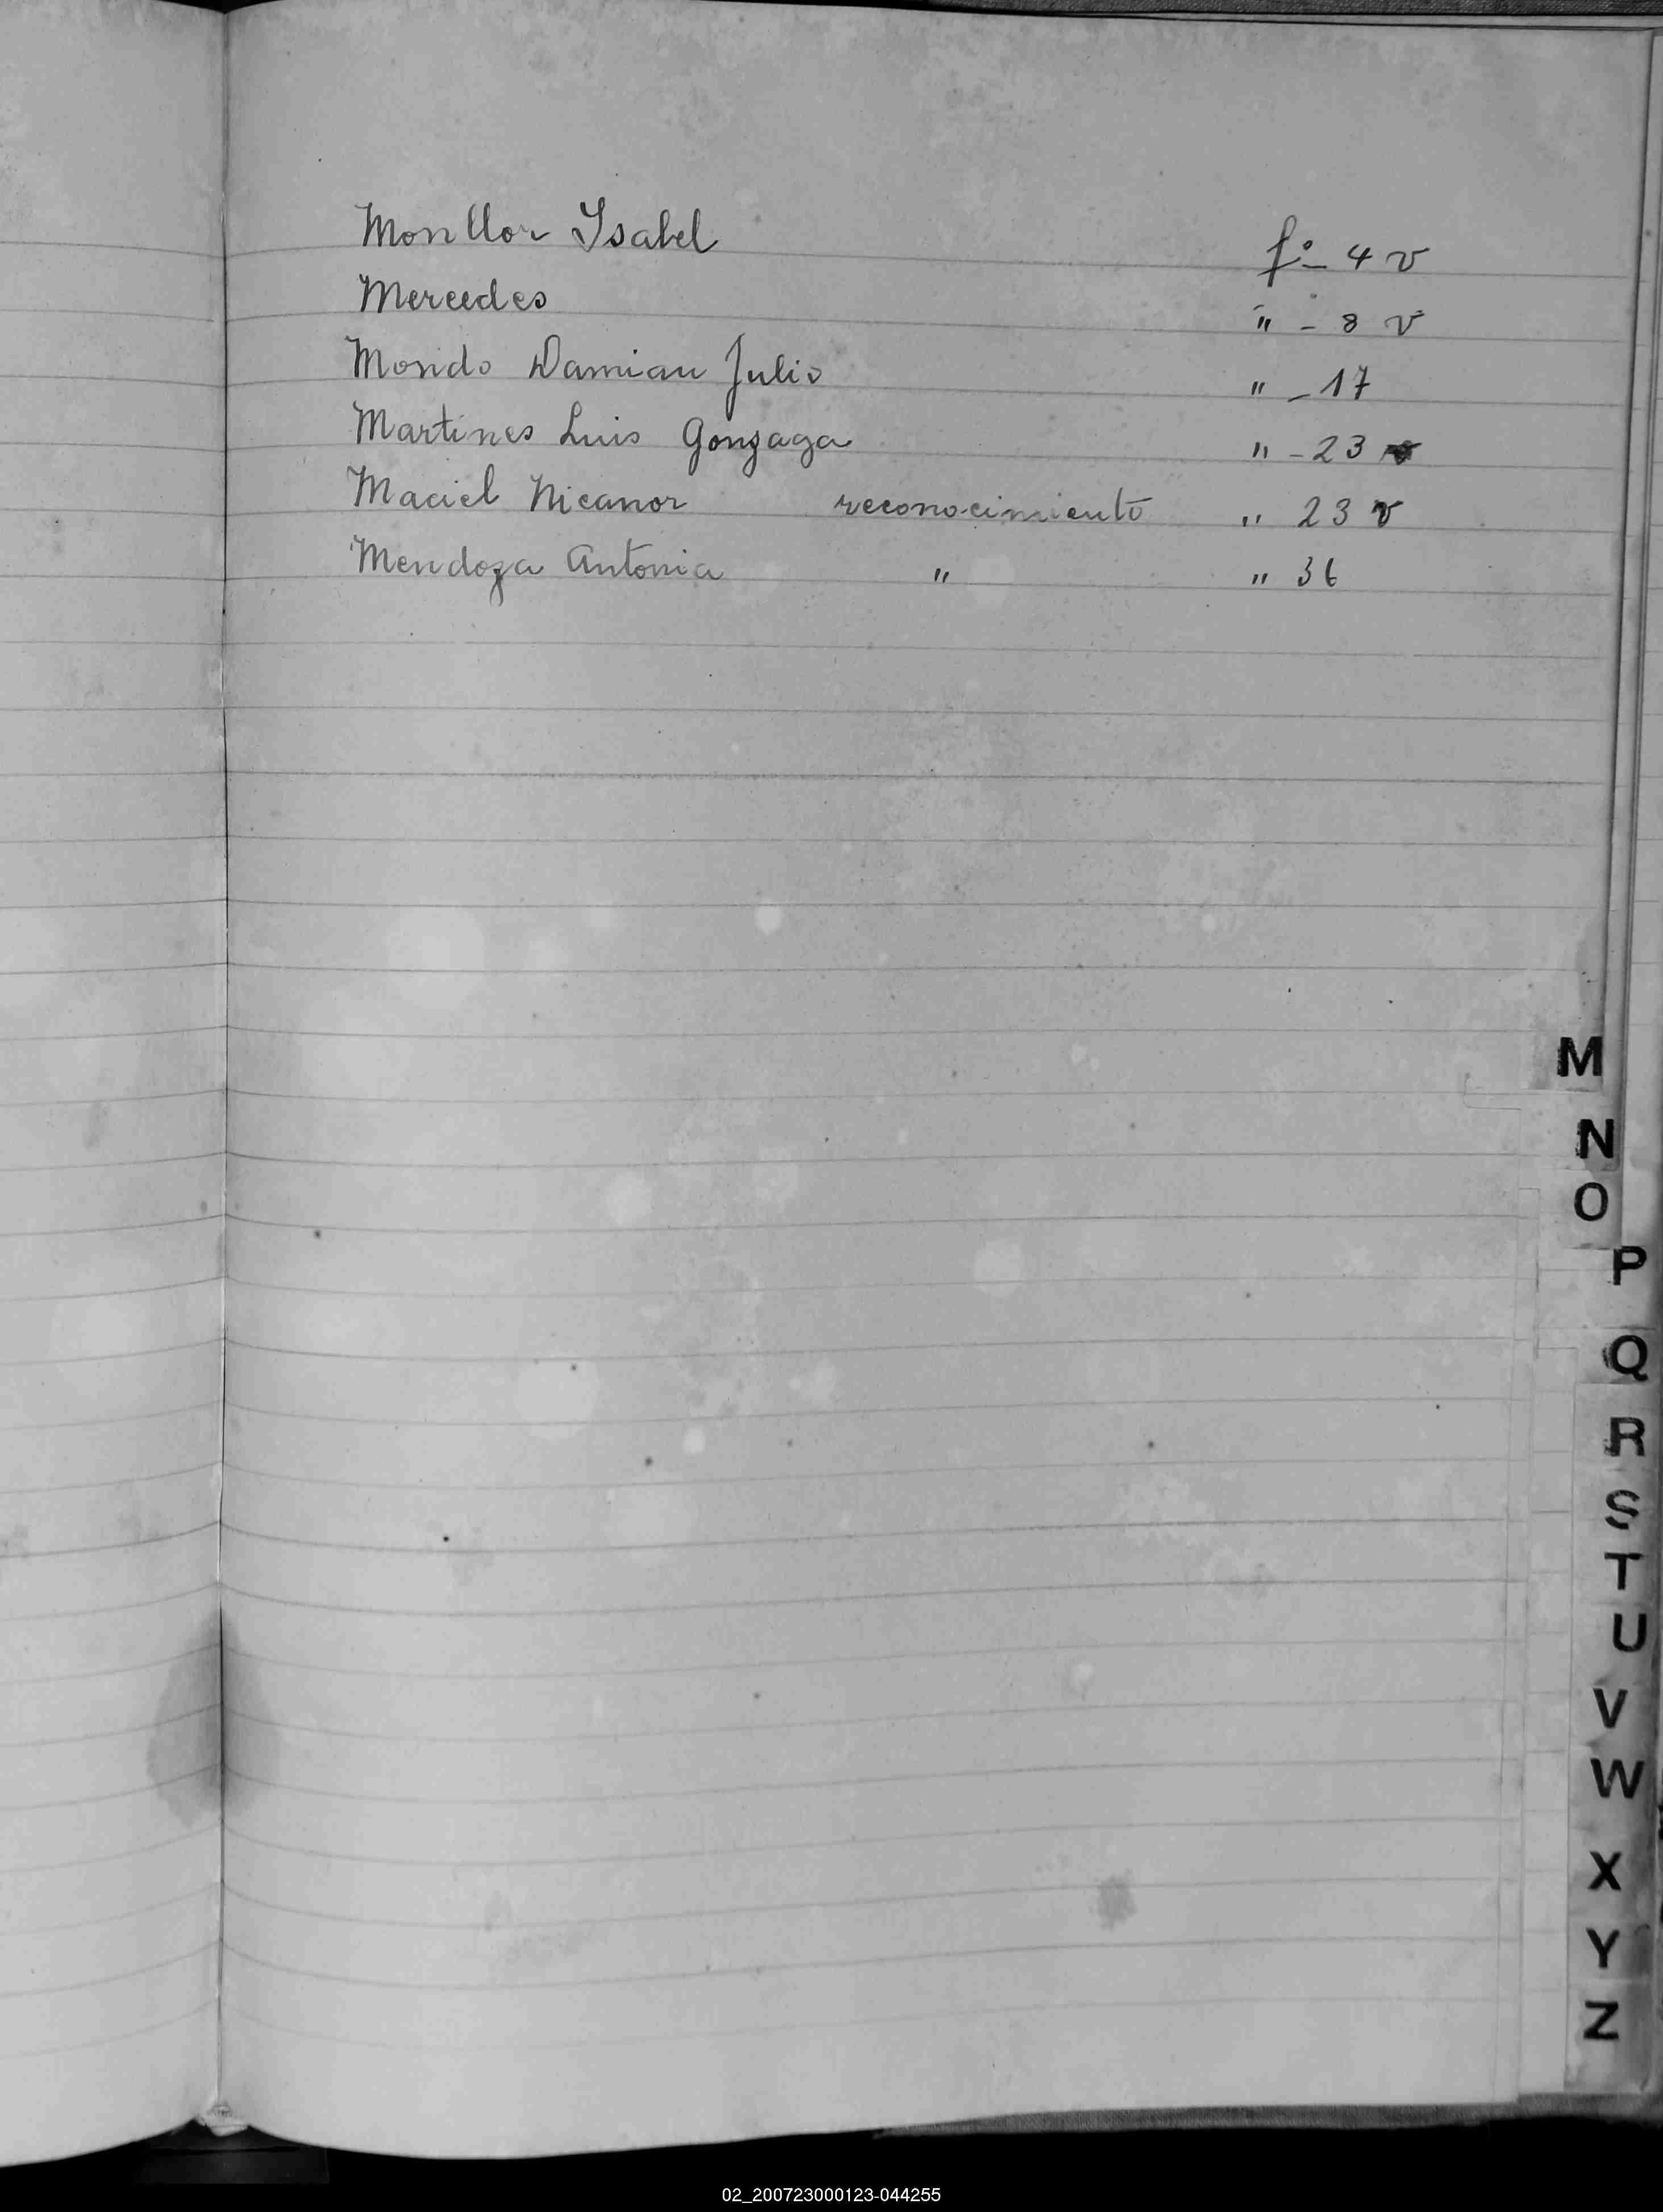 Monllor Ysabel fº - 4 v
Mercedes " - 8 v
Mondo Damian Julio " - 17
Martines Luis Gonzaga " - 23
Maciel Nicanor reconocimiento " 23 v
Mendoza Antonia " " 36
M
N
O
P
Q
R
S
T
U
V
W
X
Y
Z
02_200723000123-044255